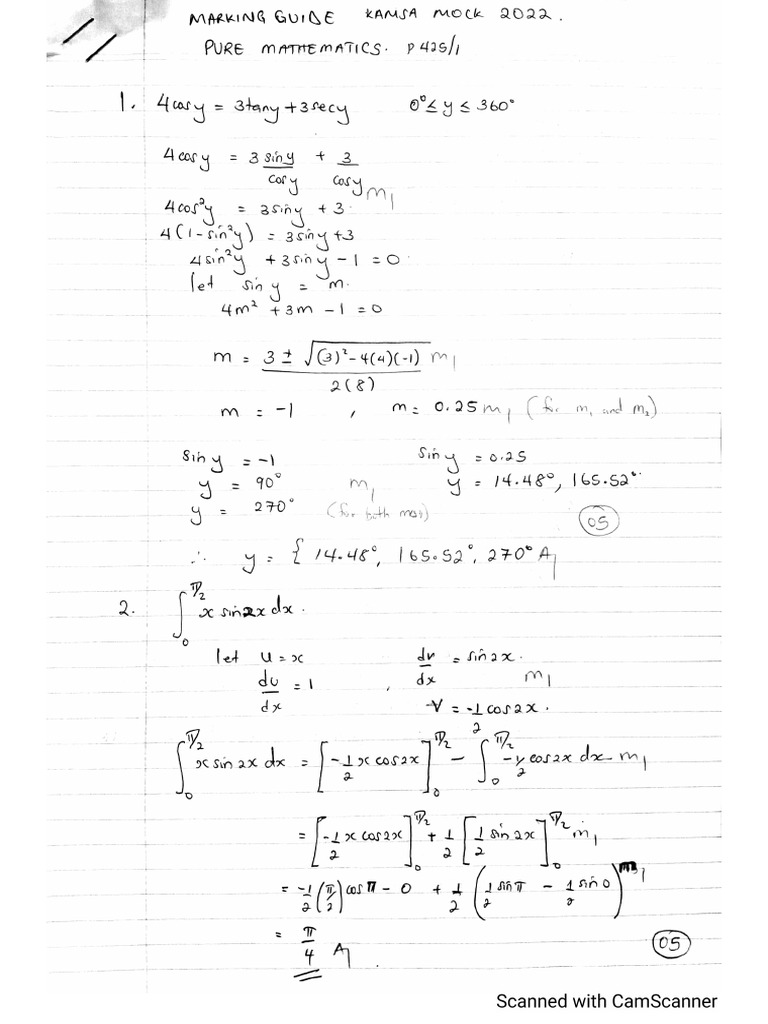 MARKING GUIDE KAMSA MOCK 2022.
PURE MATHEMATICS. P425/1
1. 4cosy = 3tany + 3secy 0° ≤ y ≤ 360°
4cosy = 3 siny/cosy + 3/cosy M1
4cos²y = 3siny + 3.
4(1-sin²y) = 3siny + 3
4sin²y + 3siny - 1 = 0
let siny = m.
4m² + 3m - 1 = 0
m = 3 ± √((3)² - 4(4)(-1)) / 2(8) M1
m = -1 , m = 0.25 M1 (for m₁ and m₂)
siny = -1 siny = 0.25
y = 90° M1 y = 14.48°, 165.52°
y = 270° (for both) 05
∴ y = {14.48°, 165.52°, 270° A1
2. ∫₀^(π/2) x sin2x dx.
let u = x dv/dx = sin2x.
du/dx = 1 , M1
V = -1/2 cos2x.
∫₀^(π/2) x sin2x dx = [-1/2 x cos2x]₀^(π/2) - ∫₀^(π/2) -1/2 cos2x dx - M1
= [-1/2 x cos2x]₀^(π/2) + 1/2 [1/2 sin2x]₀^(π/2) M1
= -1/2 (π/2) cosπ - 0 + 1/2 (1/2 sinπ - 1/2 sin0) M1
= π/4 A1 05
Scanned with CamScanner